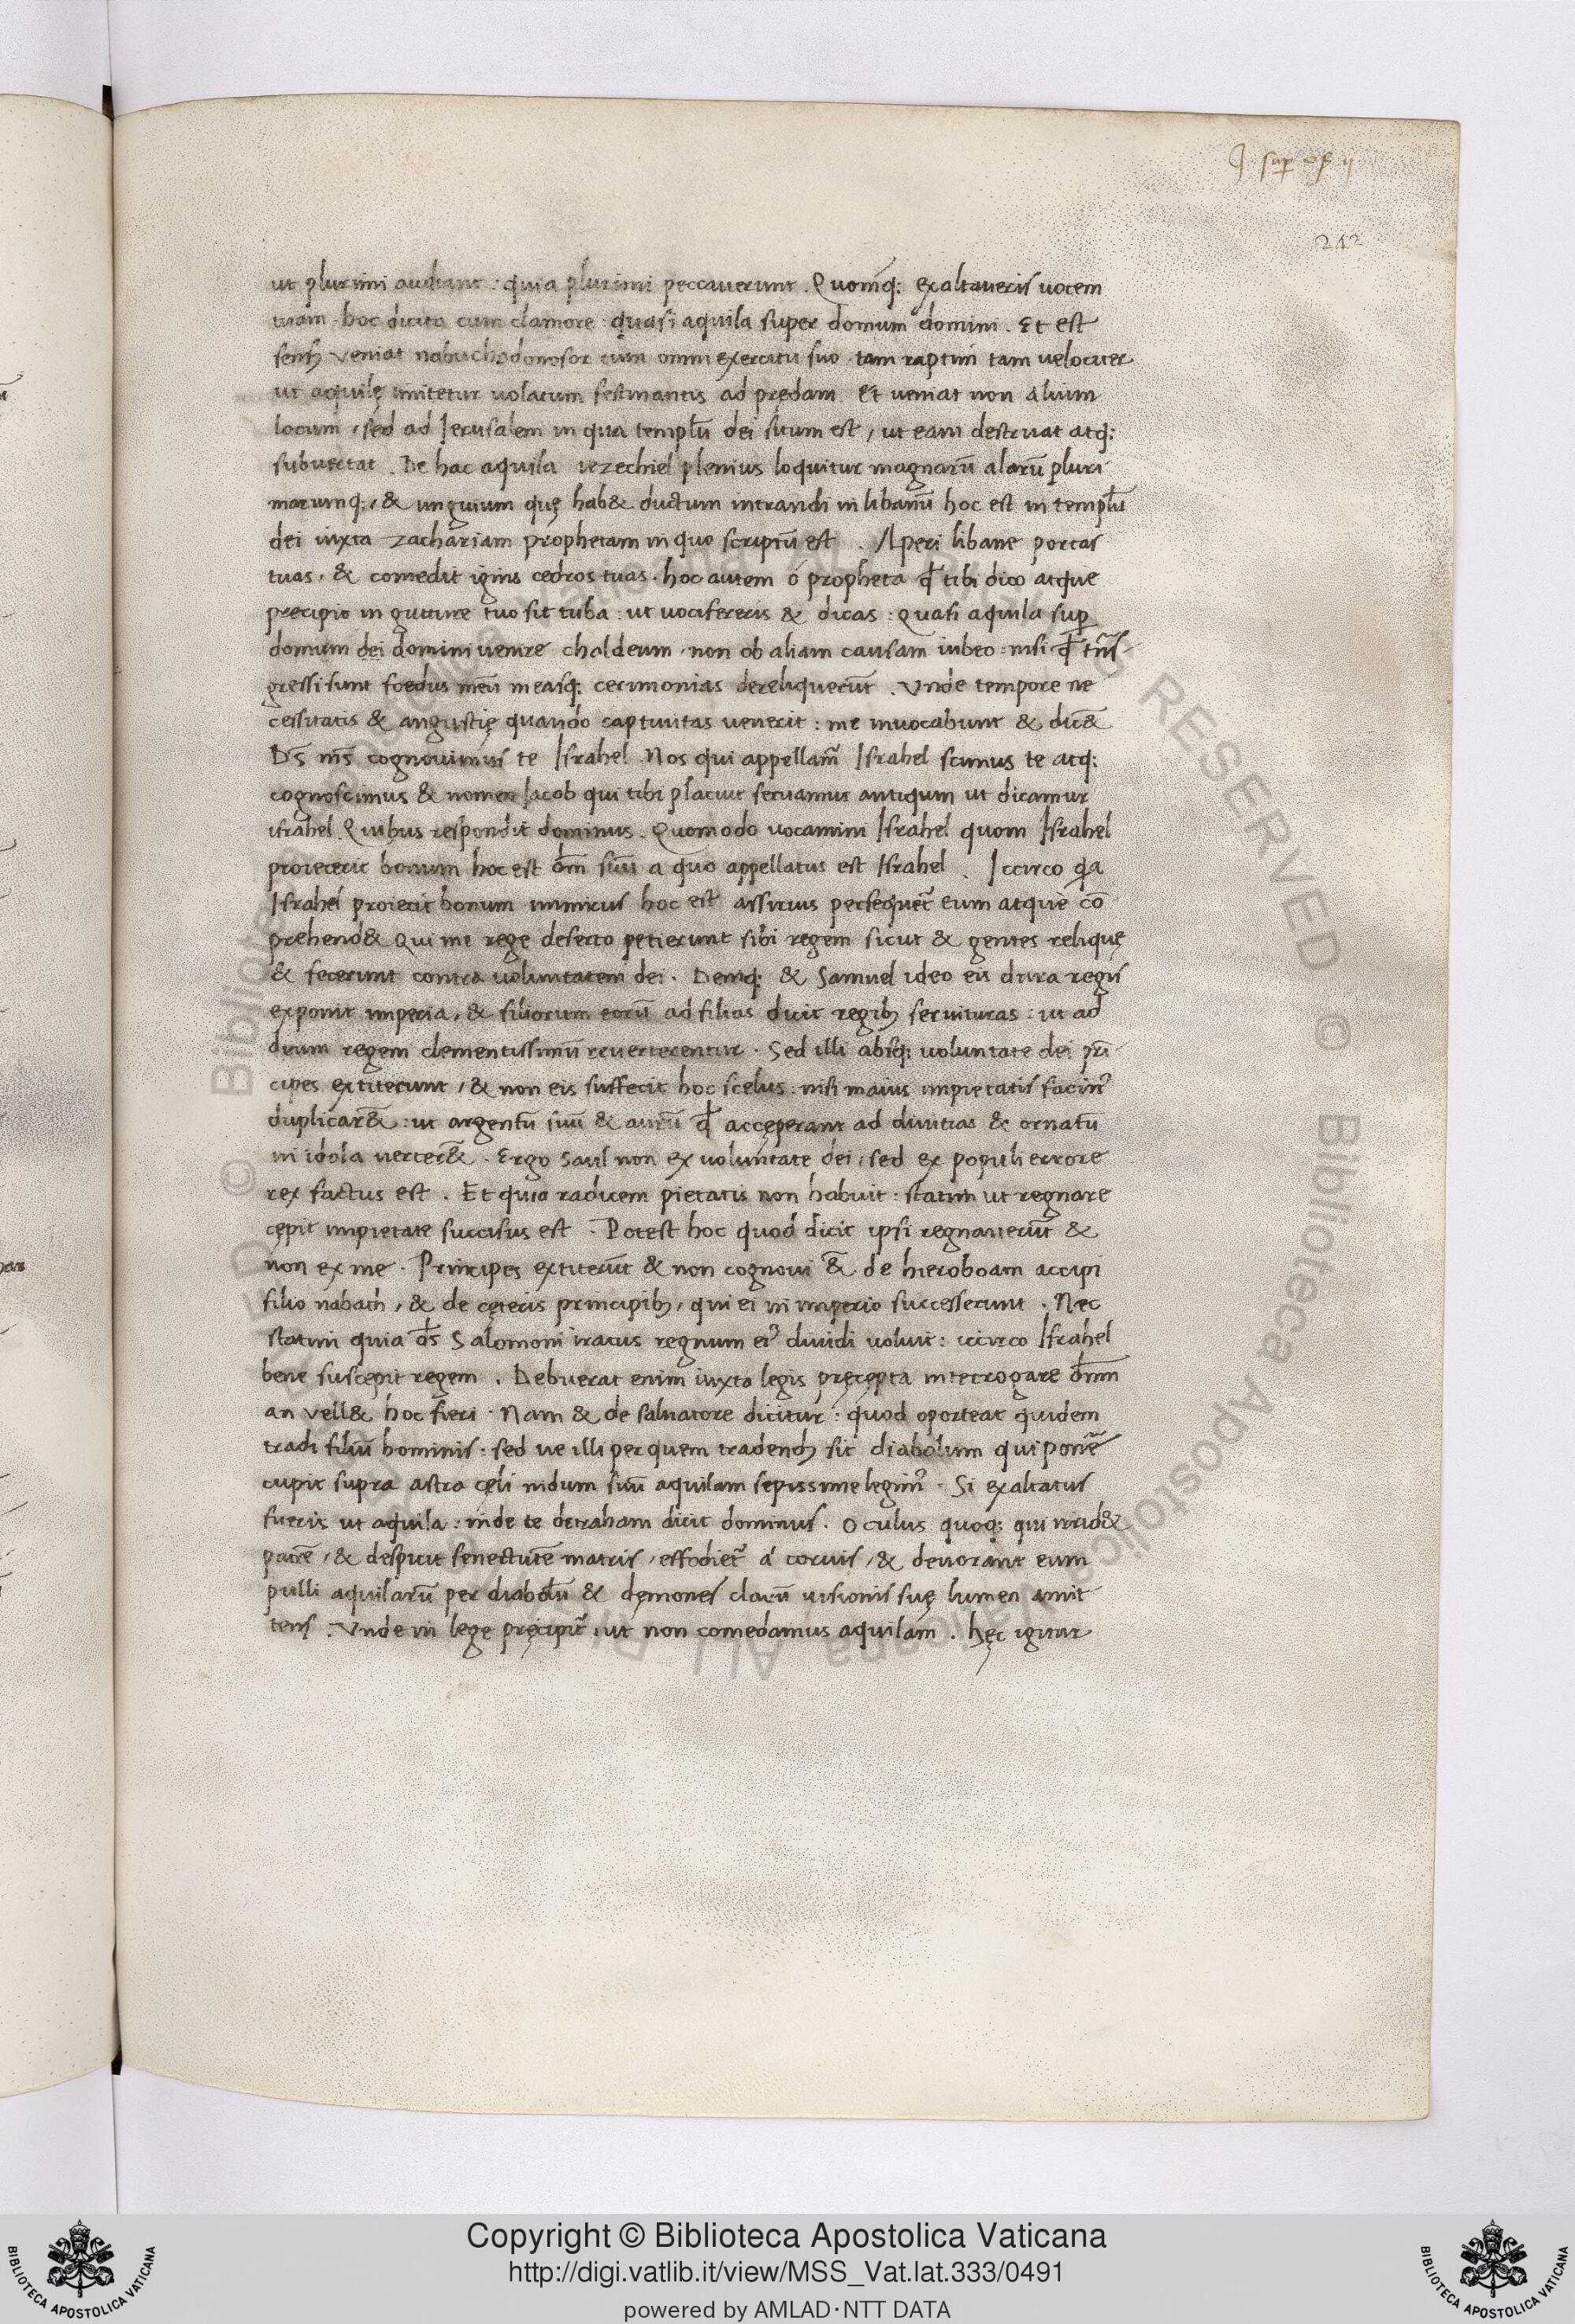 J sup
242
ut plurimi audiant : quia plurimi peccauerunt . Quomq; exaltaueris uocem
tuam . hoc dicito cum clamore : quasi aquila super domum domini . Et est
sensꝫ veniat nabuchodonosor cum omni exercitu suo . tam raptim tam uelociter
ut aquilę imitetur uolatum festinantis ad prędam . Et ueniat non Alium
locum , sed ad Jerusalem in qua templū dei situm est , ut eam destruat atq;
subuertat . De hac aquila iezechiel plenius loquitur magnarū alarū pluri
marumq; , & unguium quę hab& ductum intrandi in libanū hoc est in templū
dei iuxta zachariam prophetam in quo scriptū est . Aperi libane portas
tuas . & comedit ignis cedros tuas . hoc autem ó propheta qđ tibi dico atque
precipio in gutture tuo sit tuba : ut uocifereris & dicas : Quasi aquila sup
domum dei domini uenire chaldeum . non ob aliam causam iubeo : nisi qđ trāns
gressi sunt foedus meū measq; cerimonias dereliquerūt . Vnde tempore ne
cessitatis & angustię quando captiuitas uenerit : me inuocabunt & dic&̄
Ds̄ ns̄ cognouimus te Israhel . Nos qui appellam̄ Israhel scimus te atq;
cognoscimus & nomen Jacob qui tibi placuit seruamus antiqum ut dicamur
israhel . Quibus respondit dominus . Quomodo uocamini Israhel quom Israhel
proiecerit bonum hoc est dm̄ suū a quo appellatus est Israhel . Iccirco qa
Israhel proiecit bonum inimicus hoc est assirius persequet̄ eum atque cō
prehend& Qui me rege deserto petierunt sibi regem sicut & gentes relique̜
& fecerunt contra uoluntatem dei . Deniq; & Samuel ideo eis dura regis
exponit imperia , & filiorum eorū ad filias dicit regibꝫ seruituras : ut ad
deum regem clementissimū reuerterentur . Sed illi absq; uoluntate dei pri
cipes extiterunt , & non eis suffecit hoc scelus : nisi maius impietatis facin᾽
duplicar&̄ : ut argentū suū & aurū qđ accęperant ad diuitias & ornatū
in idola uerter&̄ . Ergo Saul non ex uoluntate dei , sed ex populi errore
rex factus est . Et quia radicem pietatis non habuit : statim ut regnare
cępit impietate succisus est . Potest hoc quod dicit ipsi regnauerūt &
non ex me . Principes extiterūt & non cognoui &̄ de hieroboam accipi
filio nabath , & de cęteris principibꝫ , qui ei in imperio successerunt . Nec
statim quia ds̄ Salomoni iratus regnum ei᾽ diuidi uoluit : iccirco Israhel
bene suscepit regem . Debuerat enim iuxta legis pręcępta interrogare dom̄
an vell& hoc fieri . Nam & de saluatore dicitur : quod oporteat quidem
tradi filiū hominis : sed ue illi per quem tradendꝫ sit diabolum qui ponē
cupit supra astra cęli nidum suū aquilam sepissime legim᾽ . Si exaltatus
fueris ut aquila : inde te detraham dicit dominus . Oculus quoq; qui irrid&
patrē , & despicit senectutē matris , effodiet̄ á coruis , & deuorant eum
pulli aquilarū per diabolū & dęmones clarū uisionis suę lumen amit
tens . Vnde in lege pręcipit̄ , ut non comedamus aquilam . hęc igitur
Copyright © Biblioteca Apostolica Vaticana
http://digi.vatlib.it/view/MSS_Vat.lat.333/0491
powered by AMLAD·NTT DATA